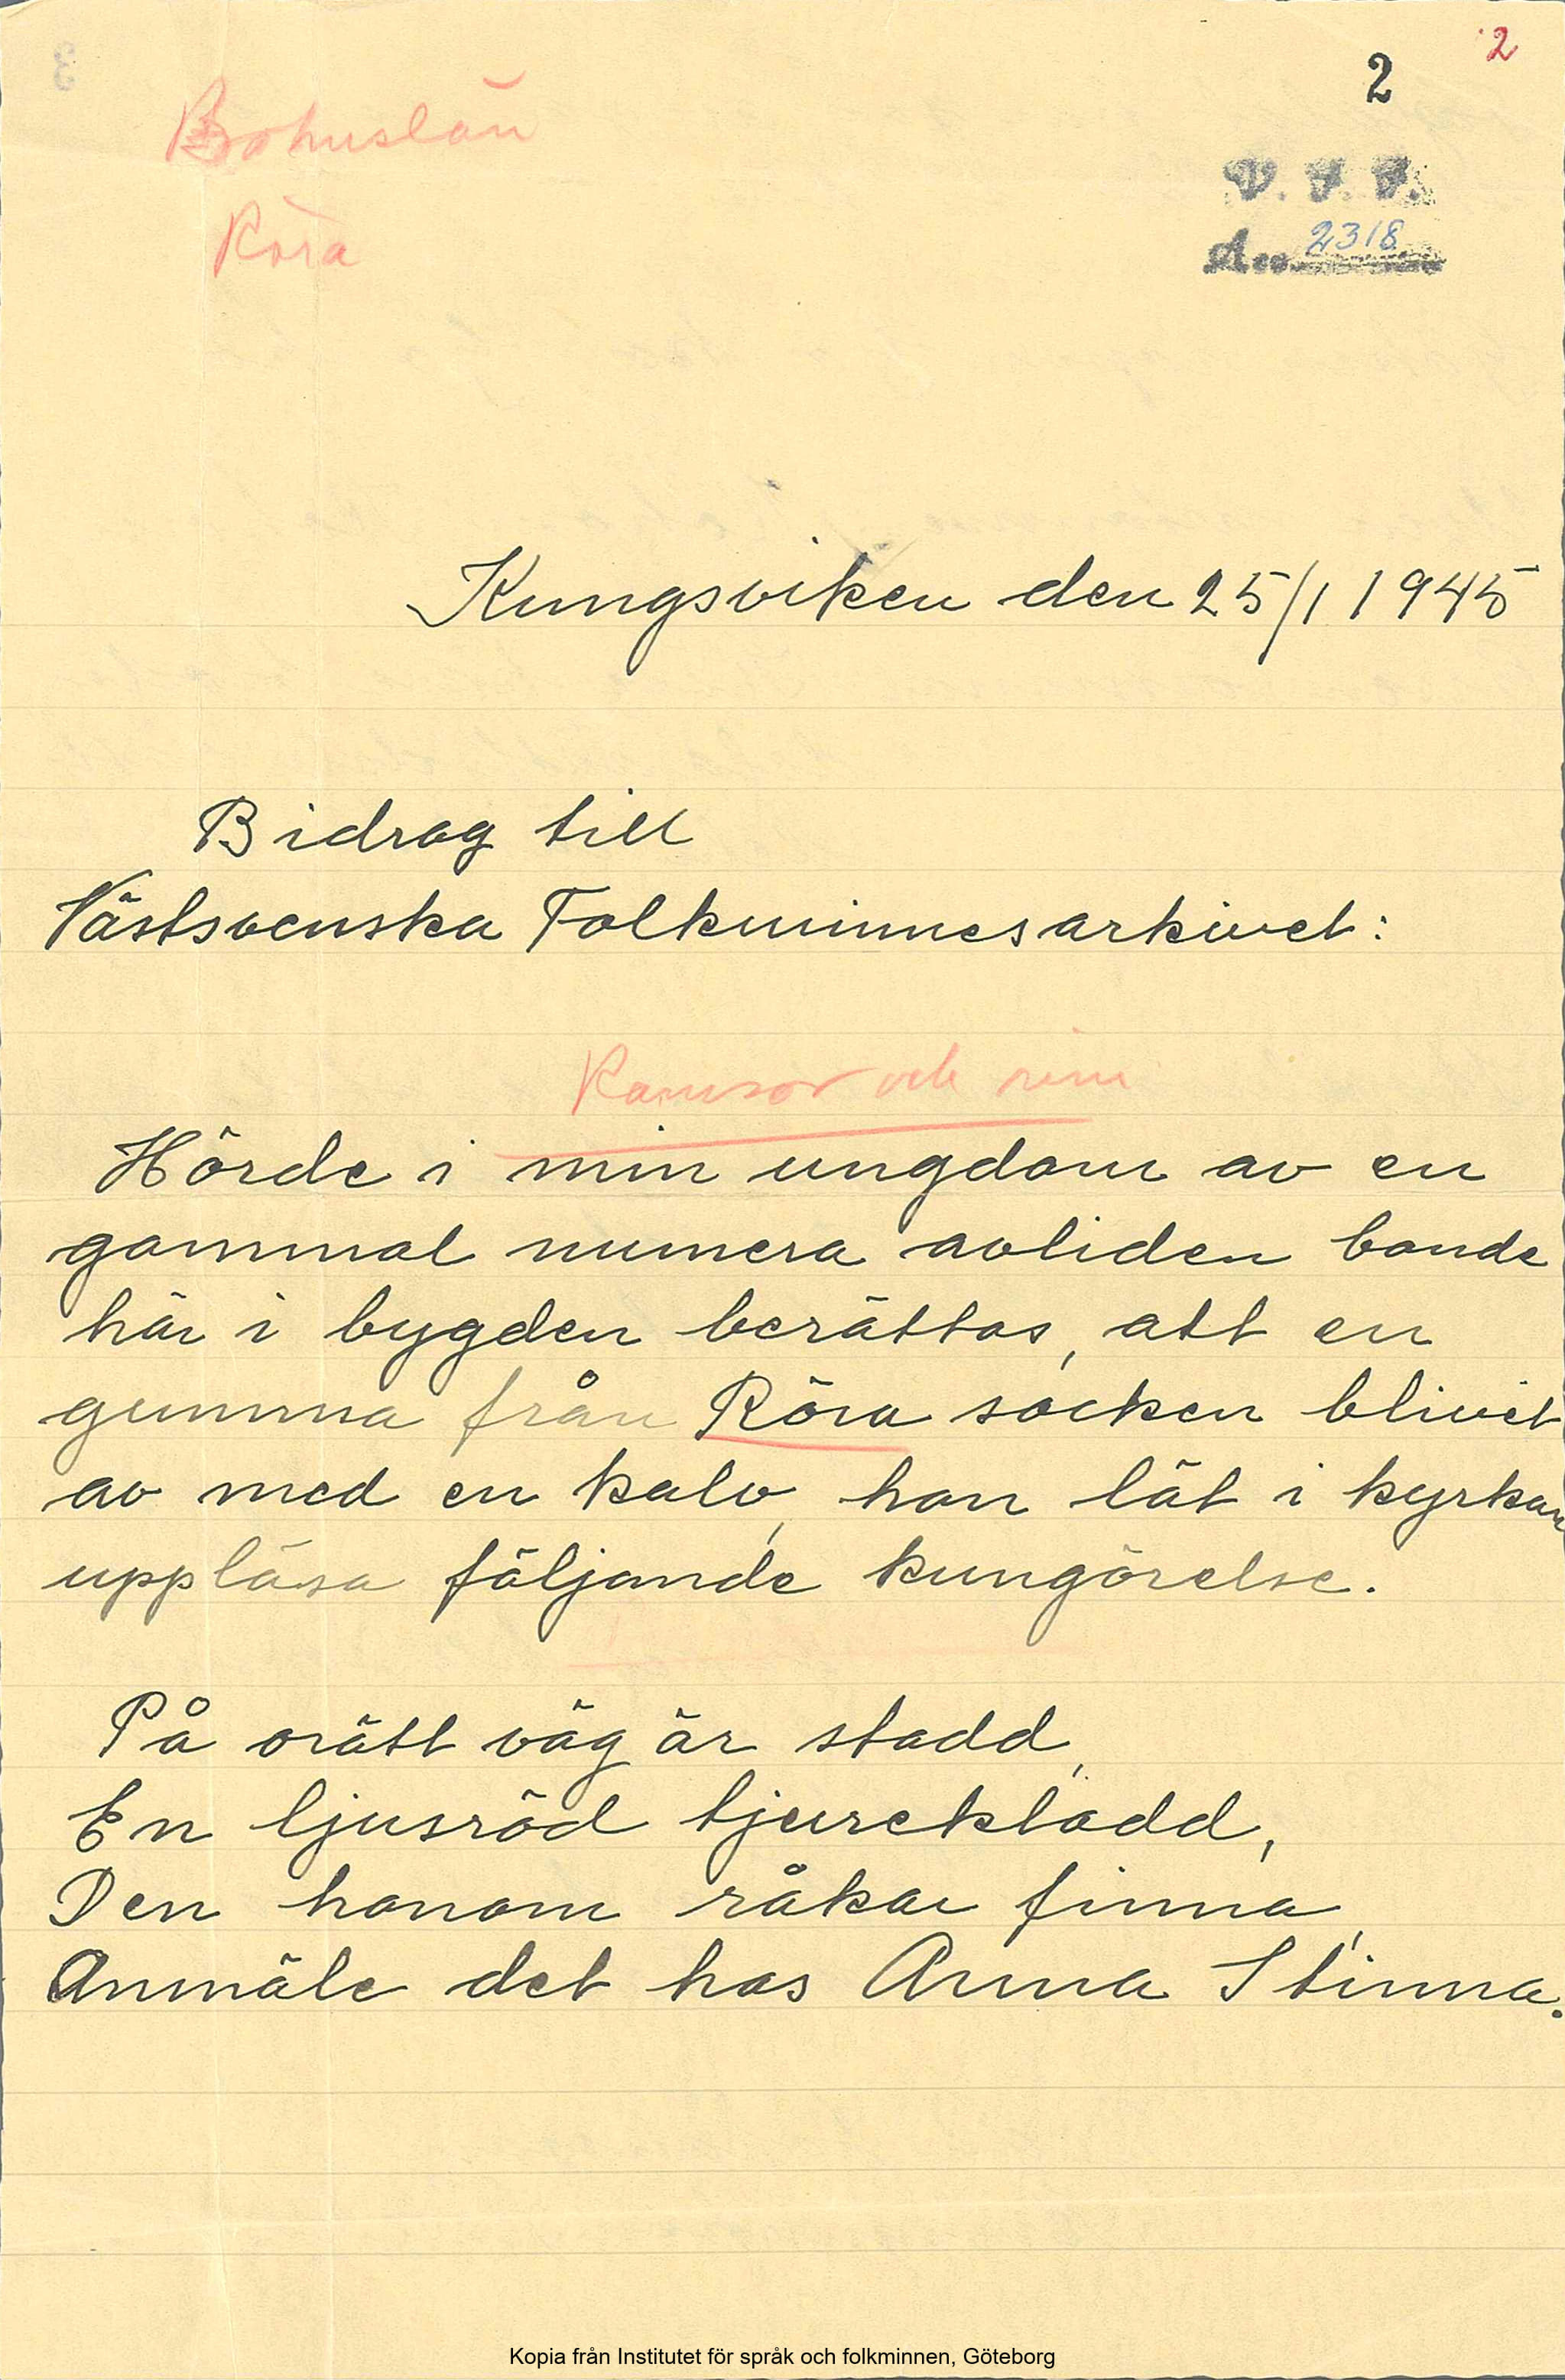 2
2
Bohuslän
Röra
V. F. F.
Acc. 2318
Kungsviken den 25/1 1945
Bidrag till
Västsvenska Folkminnesarkivet:
Ramsor och rim
Hörde i min ungdom av en
gammal numera avliden bonde
här i bygden berättas, att en
gumma från Röra socken blivit
av med en kalv, hon lät i kyrkan
uppläsa följande kungörelse.
På orätt väg är stadd,
En ljusröd tjurekladd,
Den honom råkar finna,
Anmäle det hos Anna Stinna.
Kopia från Institutet för språk och folkminnen, Göteborg